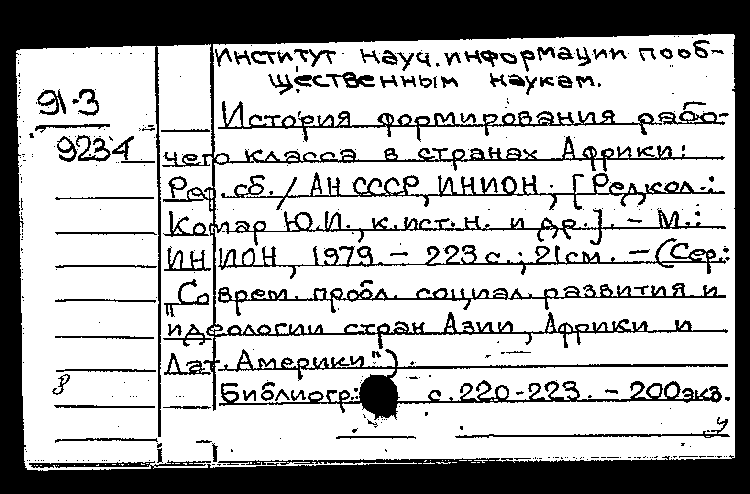 Институт науч. информации по об-
щественным наукам.
91-3
9234
История формирования рабо-
чего класса в странах Африки:
Реф. сб. / АН СССР, ИНИОН; [Редкол.:
Комар Ю.И., к.ист.н. и др.]. - М.:
ИНИОН, 1979. - 223 с.; 21 см. - (Сер.:
"Соврем. пробл. социал. развития и
идеологии стран Азии, Африки и
Лат. Америки").
Библиогр.: с. 220-223. - 200 экз.